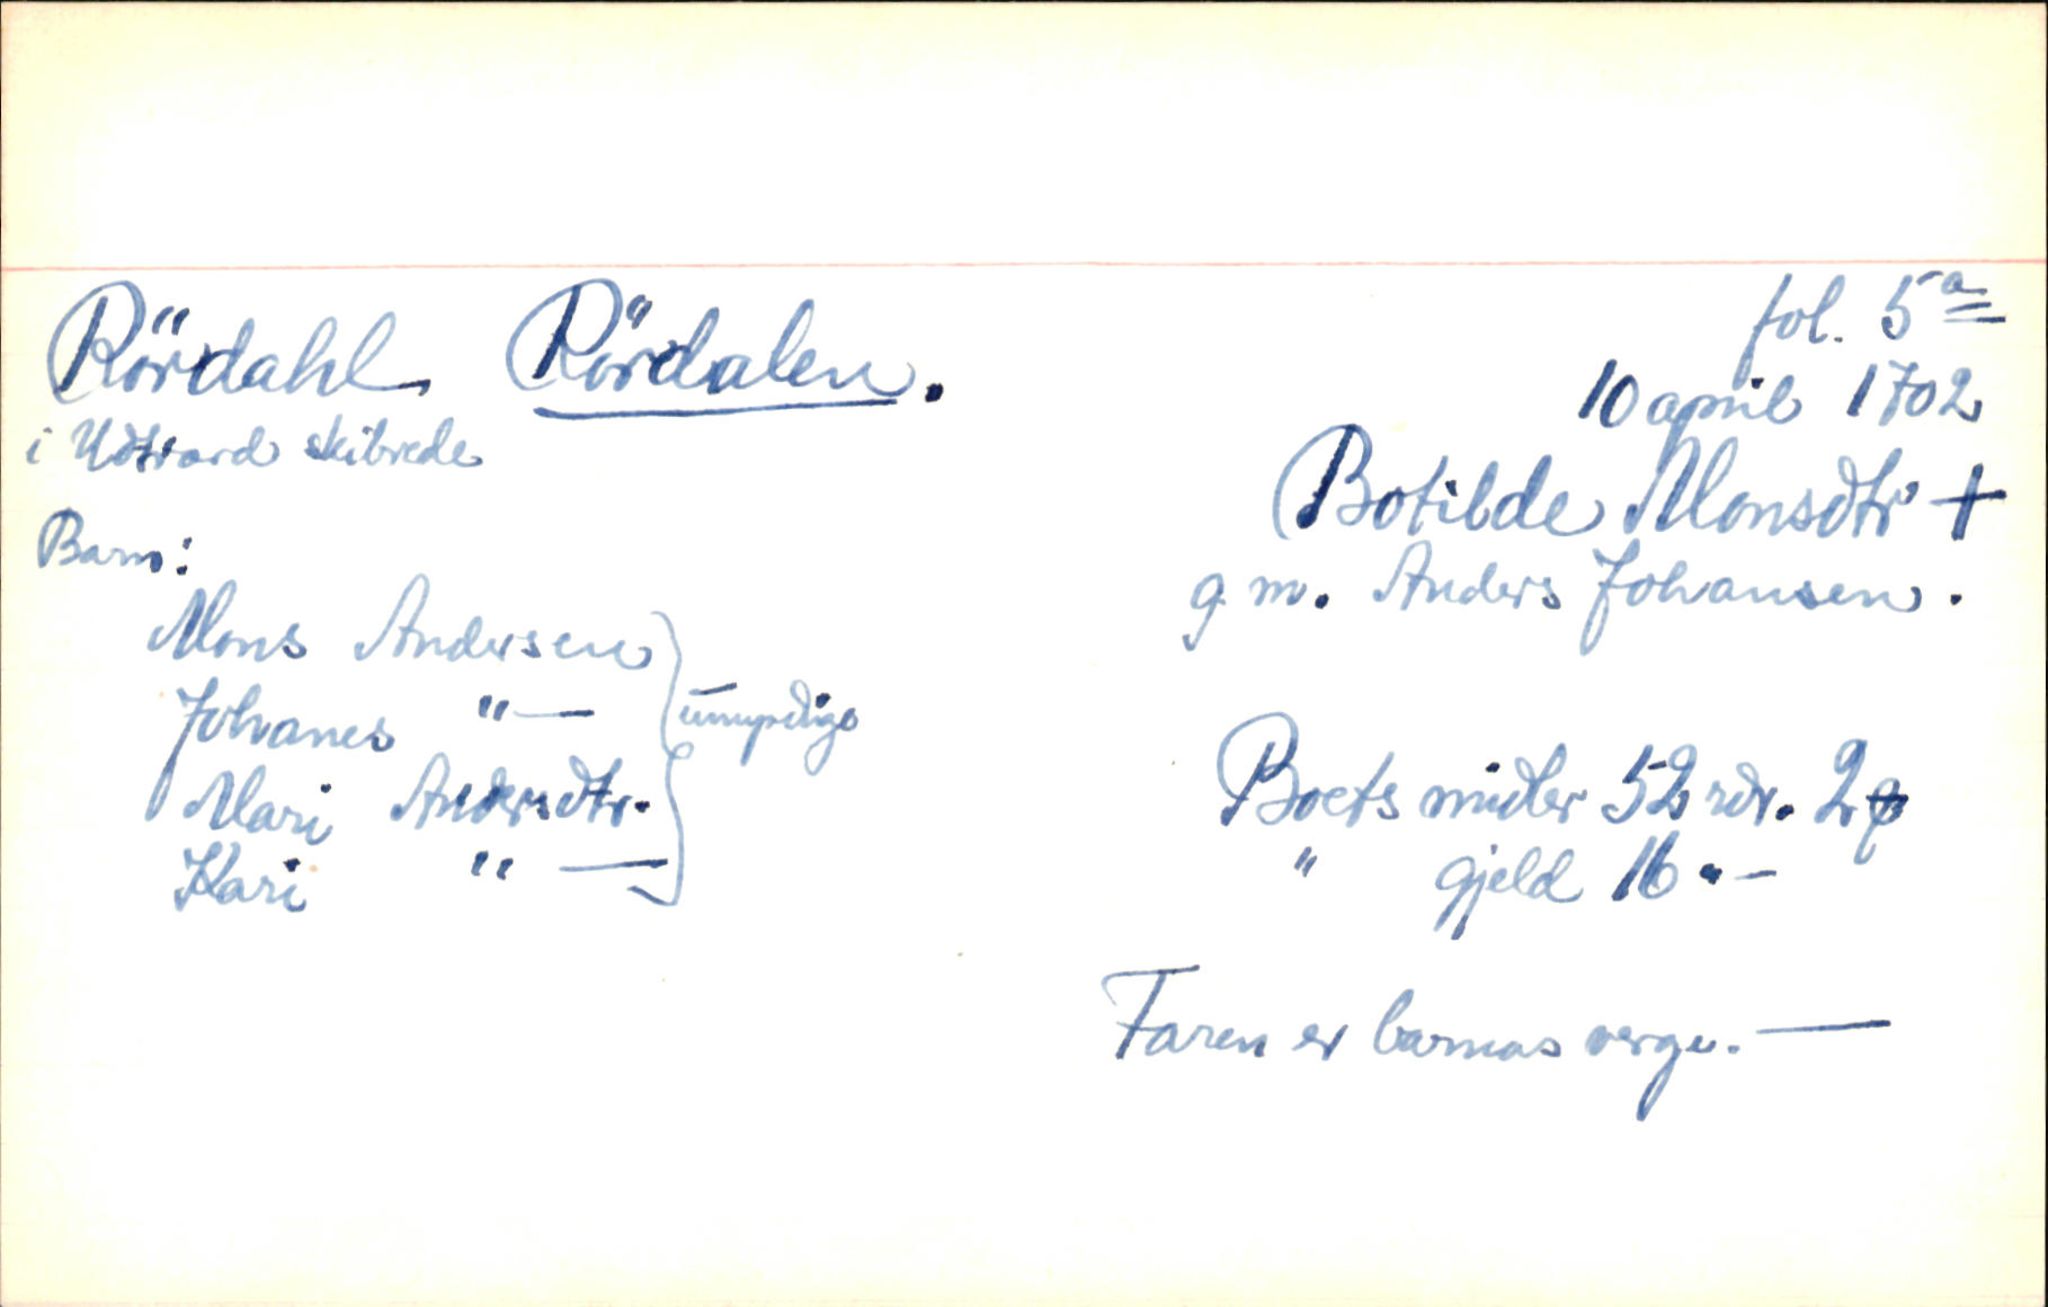 Rördahl, Rördalen.
i Udtrard skibrede
Barn:
Mons Andersen
Johanes "—
umyndige
Mari Andersdtr.
Kari "—
fol. 5a
10 april 1702
Botilde Monsdtr +
g m. Anders Johansen.
Boets midler 52 rdr. 2
" gjeld 16 "-
Faren er barnas verge. —